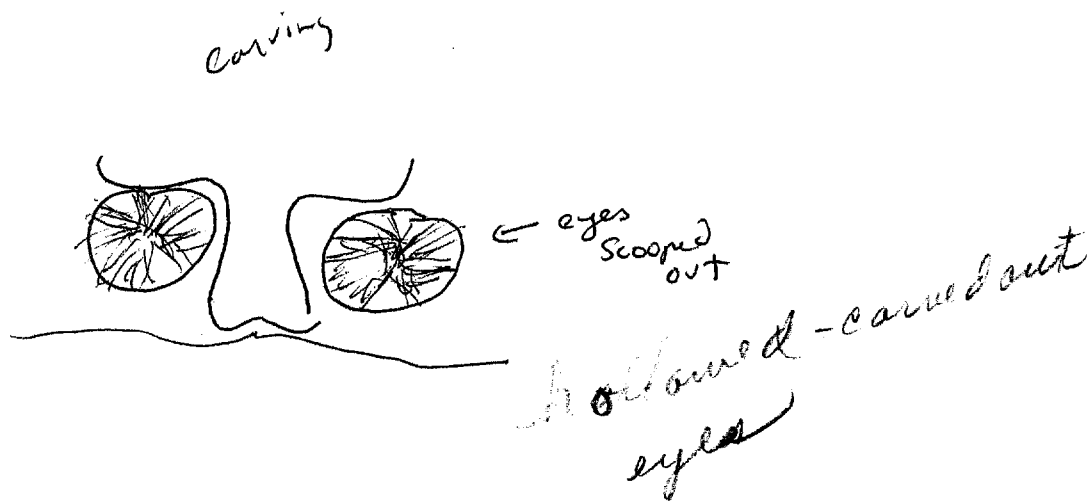 carving
← eyes
scooped
out
hollowed-carved out
eyes